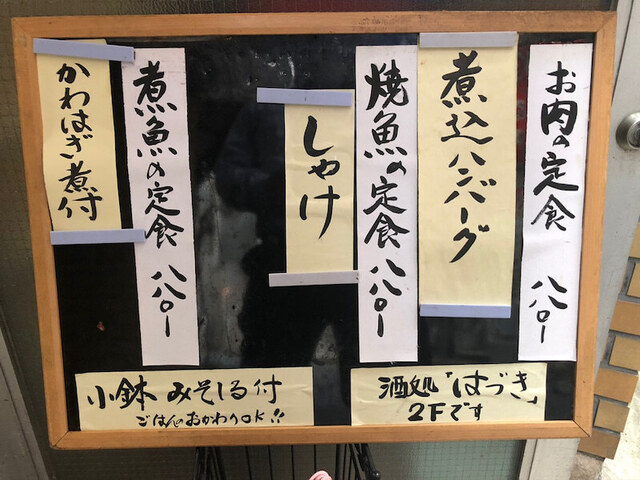 お肉の定食 八八〇ー
煮込ハンバーグ
焼魚の定食 八八〇ー
しゃけ
煮魚の定食 八八〇ー
かわはぎ煮付
酒処「はづき」
2Fです
小鉢 みそしる付
ごはんのおかわりOK!!